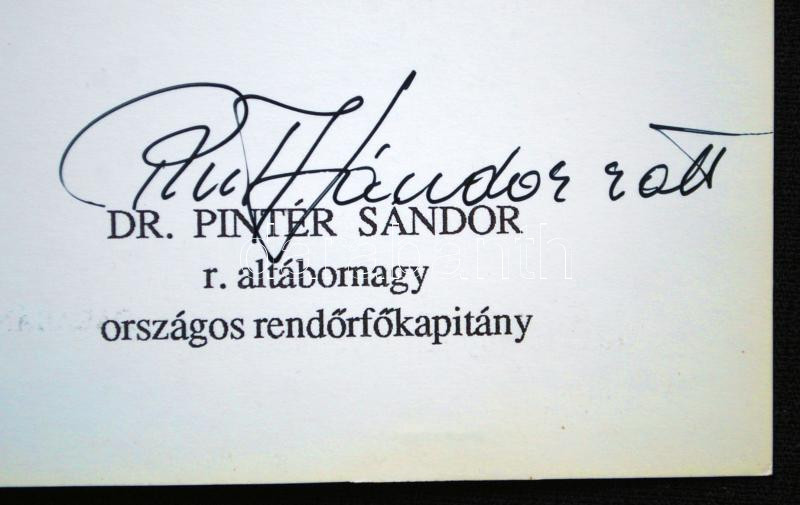 Pintér Sándor r. altt
DR. PINTÉR SÁNDOR
r. altábornagy
országos rendőrfőkapitány
darabanth